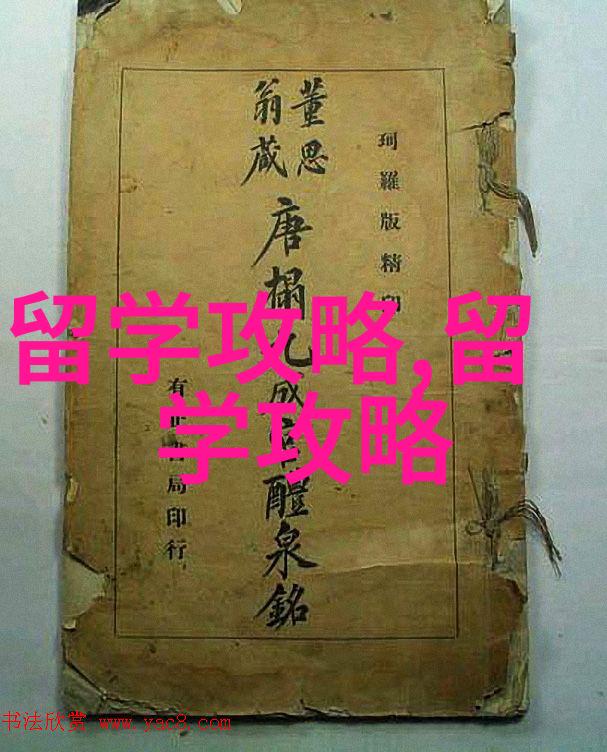 留学攻略,留
学攻略
珂羅版精印
董思
翁藏
唐搨九成宮醴泉銘
有正書局印行
书法欣赏 www.yac8.com